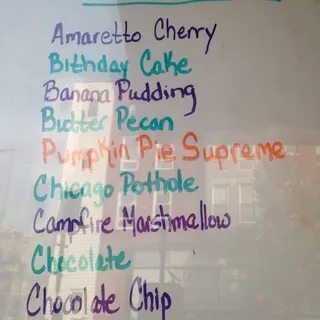 Amaretto Cherry
Birthday Cake
Banana Pudding
Butter Pecan
Pumpkin Pie Supreme
Chicago Pothole
Campfire Marshmallow
Chocolate
Chocolate Chip